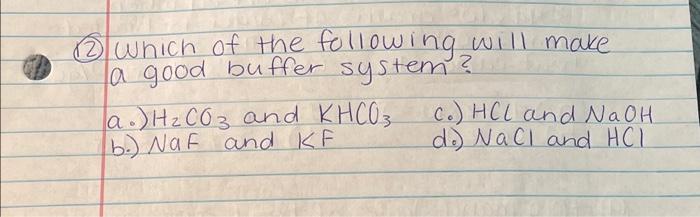 ② which of the following will make
a good buffer system?
a.) H₂CO₃ and KHCO₃ c.) HCl and NaOH
b.) NaF and KF d.) NaCl and HCl